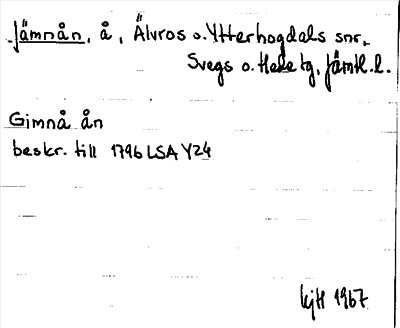 Jämnån, å, Älvros o. Ytterhogdals snr,
Svegs o. Hede tg, Jämtl. l.
Gimnå ån
beskr. till 1796 LSA Y24
kjH 1967